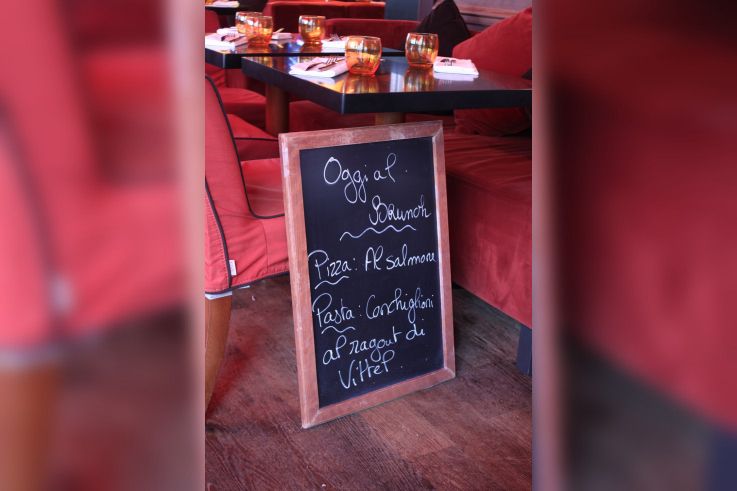 Oggi al
Brunch
Pizza: Al salmone
Pasta: Conchiglioni
al ragout di
Vittel